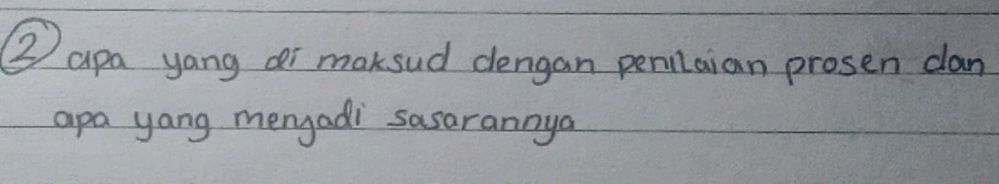 ② apa yang di maksud dengan penilaian prosen dan
apa yang menjadi sasarannya